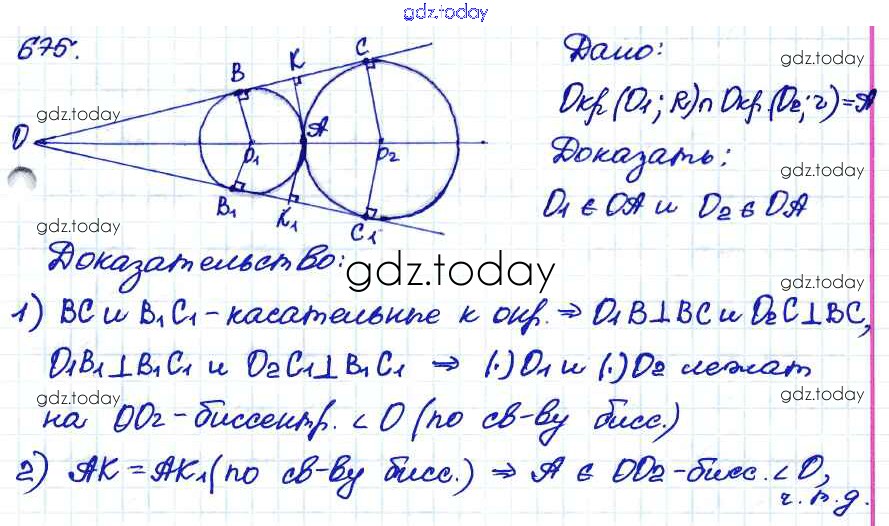 gdz.today
675.
B
K
C
O
A
O₁
O₂
B₁
K₁
C₁
Дано:
gdz.today
gdz.today
Окр.(O₁; R)∩Окр.(O₂; r)=A
gdz.today
Доказать:
gdz.today
O₁ ∈ OA и O₂ ∈ OA
gdz.today
Доказательство:
gdz.today
gdz.today
1) BC и B₁C₁ - касательные к окр. ⇒ O₁B⊥BC и O₂C⊥BC,
O₁B₁⊥B₁C₁ и O₂C₁⊥B₁C₁ ⇒ (·)O₁ и (·)O₂ лежат
gdz.today
gdz.today
на OO₂ - биссектр. ∠O (по св-ву бисс.)
2) AK = AK₁ (по св-ву бисс.) ⇒ A ∈ OO₂ - бисс. ∠O,
ч.т.д.